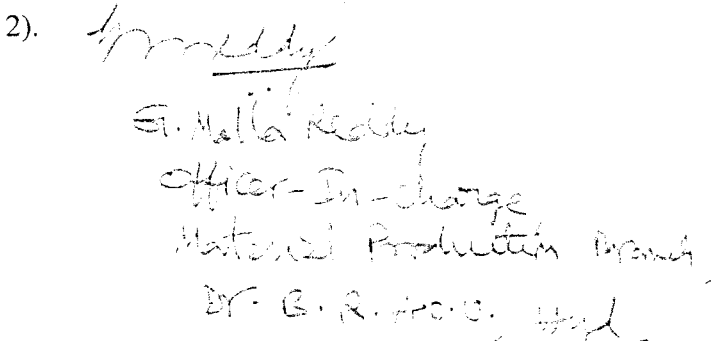 2).
G. Malla Reddy
Officer-In-charge
Material Production Branch,
Dr. B. R. A.O.U., Hyd.